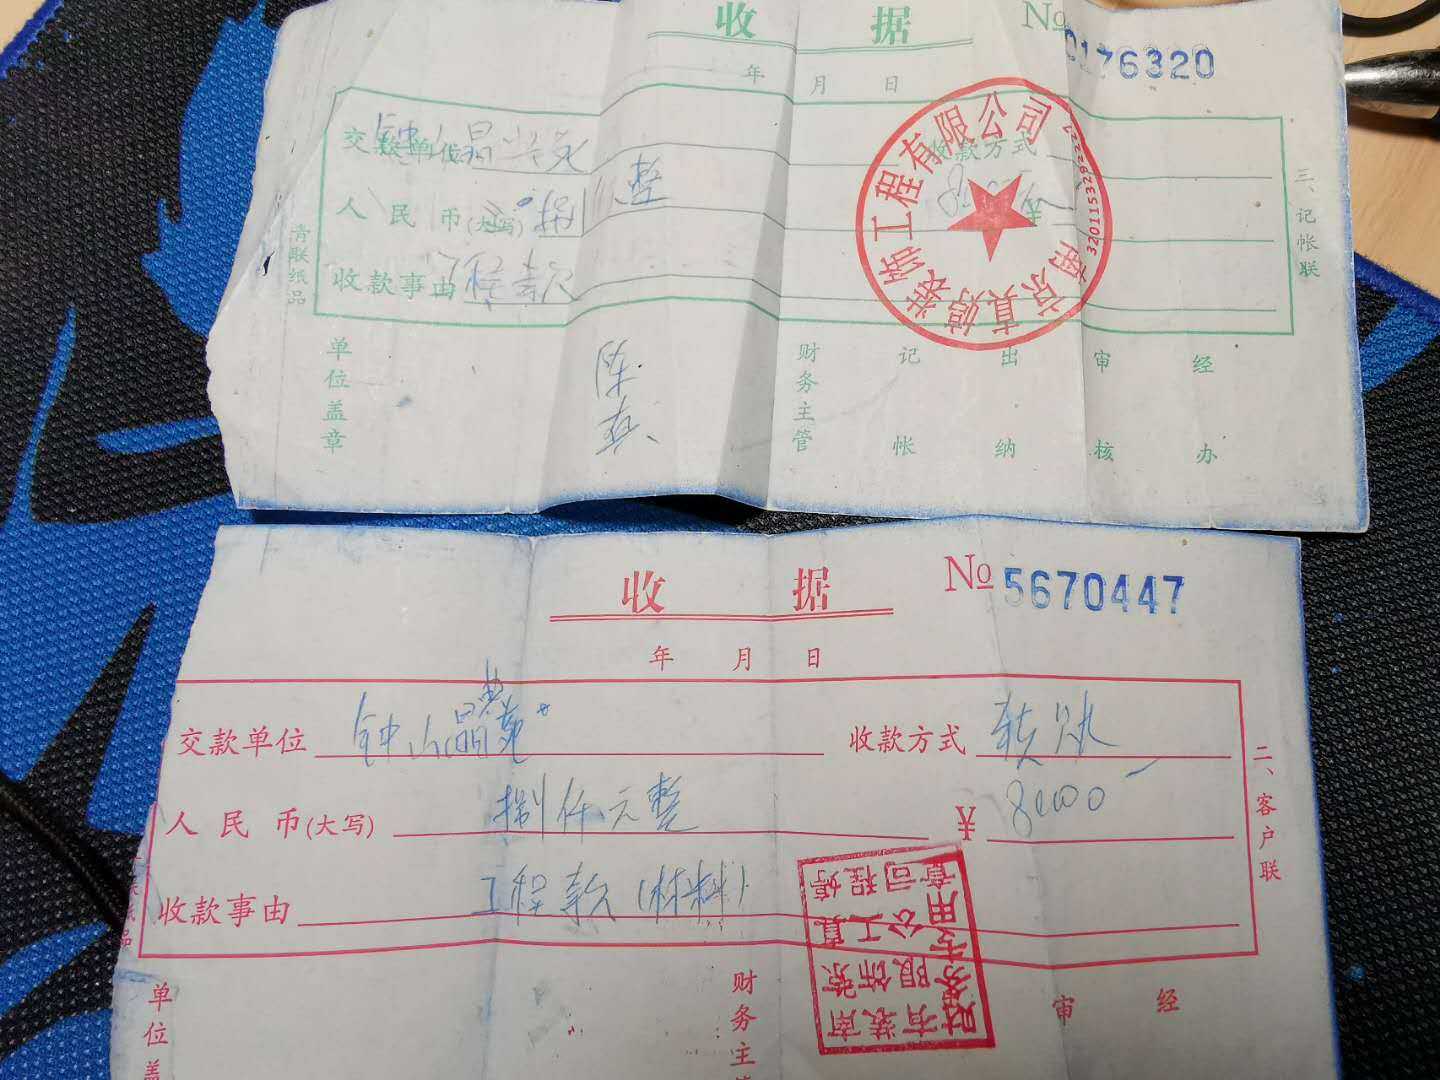 收 据 № 0176320
年 月 日
交款单位 钟山晶典苑 收款方式
人民币(大写) 捌 整 ¥
收款事由 工程款
青联纸品
三、记帐联
南京真婷装饰工程有限公司
单位盖章 陈 财务主管 记帐 出纳 审核 经办
收 据 № 5670447
年 月 日
交款单位 钟山晶典苑 收款方式 转账
人民币(大写) 捌仟元整 ¥ 8000
收款事由 工程款(材料)
二、客户联
南京真婷装饰工程有限公司财务专用章
单位盖 财务主 审 经